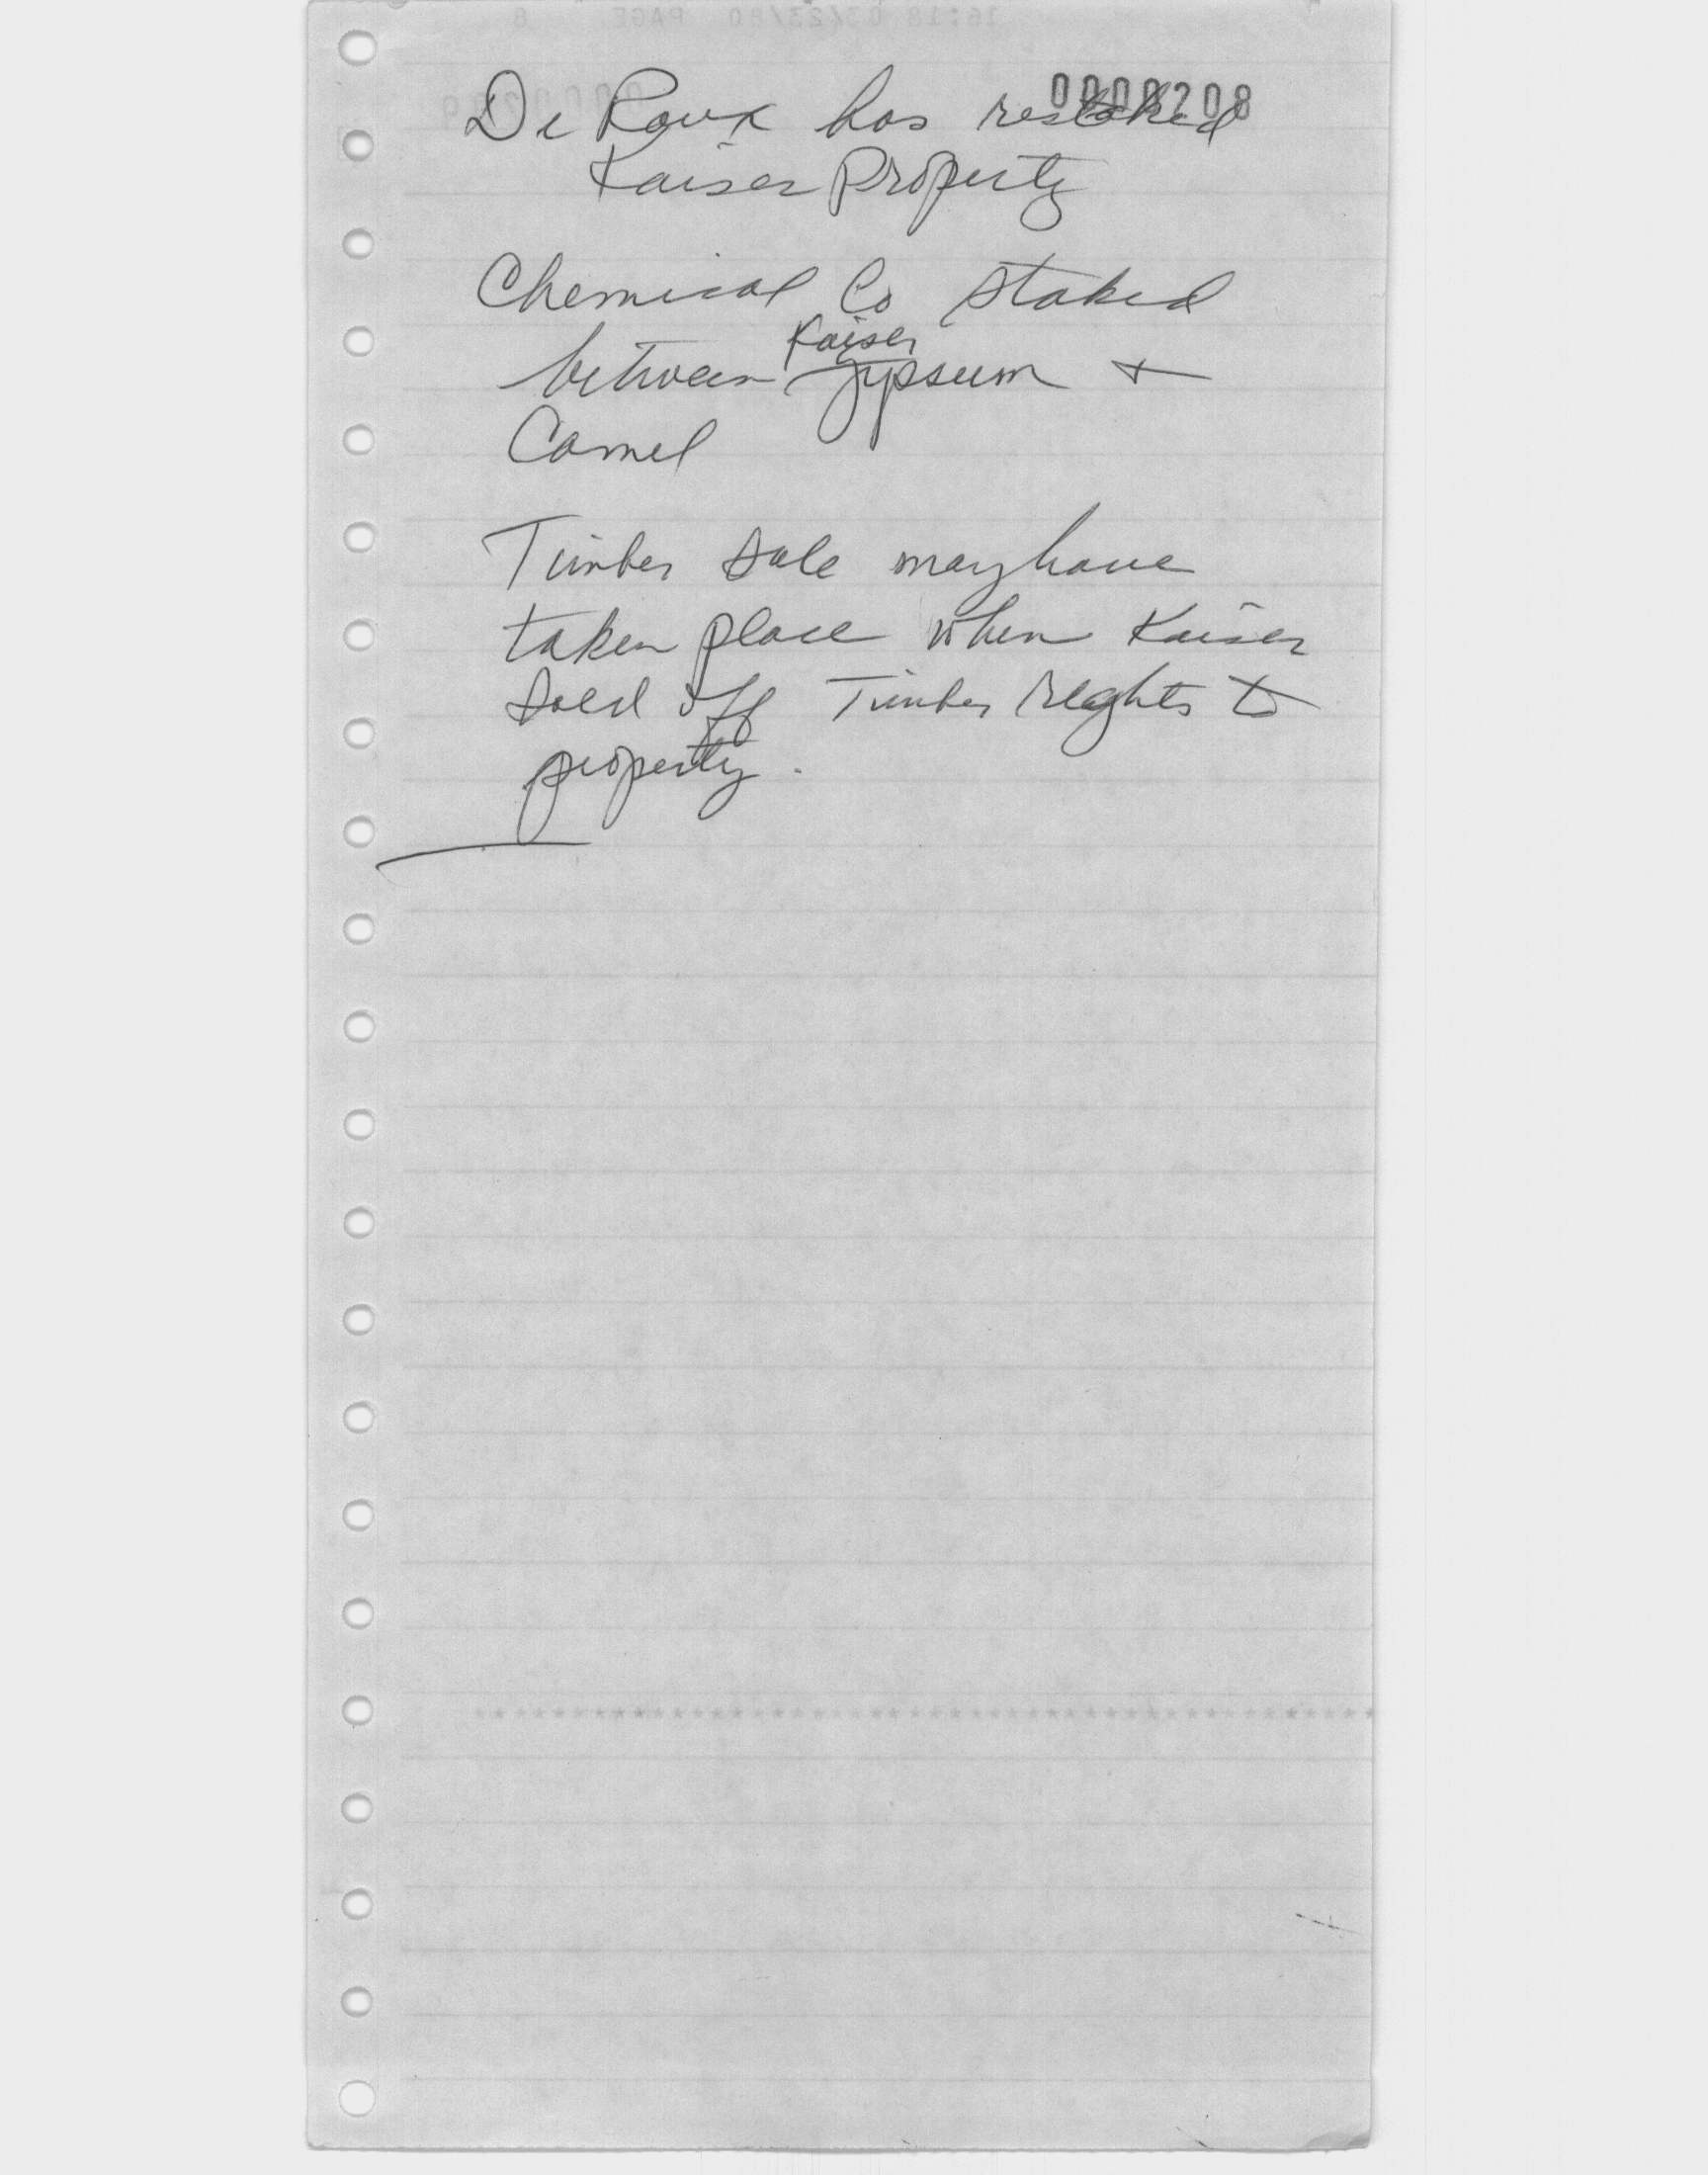 0000208
De Roux has restaked
Kaiser Property
Chemical Co staked
Kaiser
between gypsum +
Camel
Timber sale may have
taken place when Kaiser
sold off Timber Rights to
property.